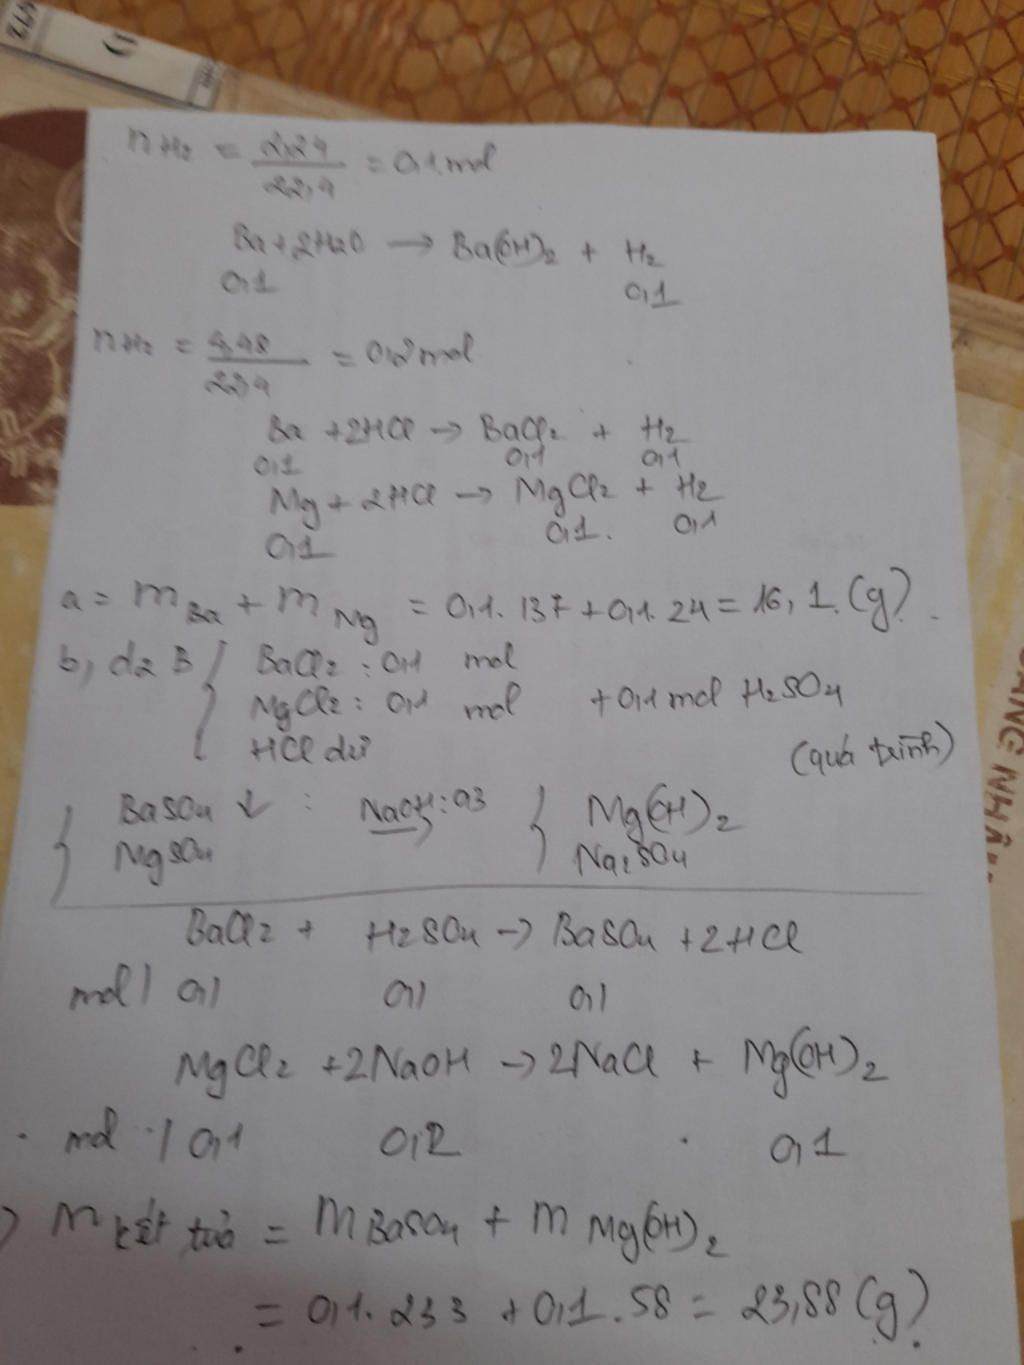 nH₂ = 2,24/22,4 = 0,1 mol
Ba + 2H₂O → Ba(OH)₂ + H₂
0,1 0,1
nH₂ = 4,48/22,4 = 0,2 mol
Ba + 2HCl → BaCl₂ + H₂
0,1 0,1 0,1
Mg + 2HCl → MgCl₂ + H₂
0,1 0,1. 0,1
a = m Ba + m Mg = 0,1. 137 + 0,1. 24 = 16,1. (g).
b, d2 B { BaCl₂ : 0,1 mol
MgCl₂ : 0,1 mol + 0,1 mol H₂SO₄
HCl dư
(quá trình)
{ BaSO₄ ↓ : NaOH : 0,3 } Mg(OH)₂
MgSO₄ Na₂SO₄
BaCl₂ + H₂SO₄ → BaSO₄ + 2HCl
mol | 0,1 0,1 0,1
MgCl₂ + 2NaOH → 2NaCl + Mg(OH)₂
mol | 0,1 0,2 0,1
m kết tủa = m BaSO₄ + m Mg(OH)₂
= 0,1. 233 + 0,1. 58 = 23,88 (g).